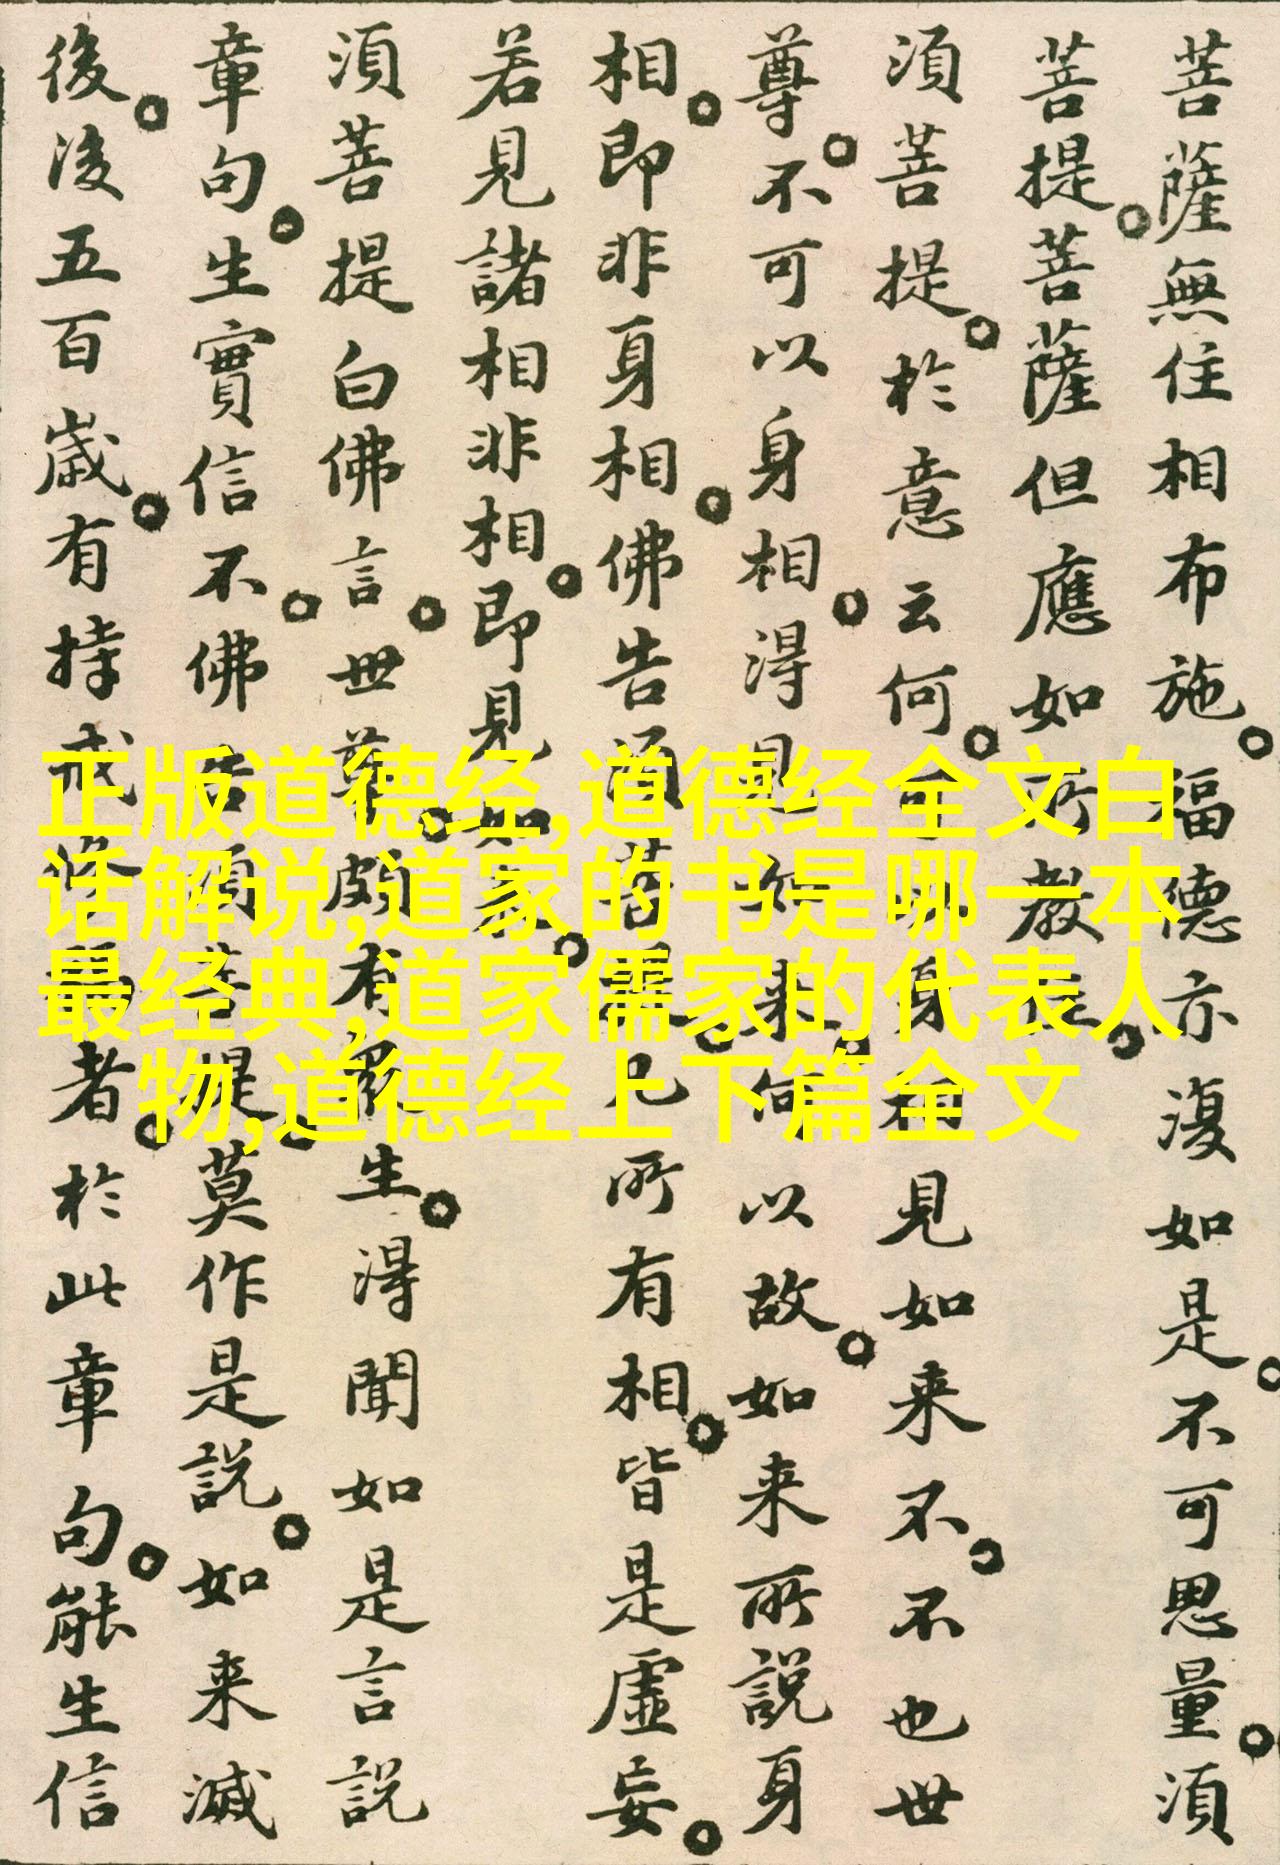 菩薩無住相布施。福德亦復如是。不可思量。須
菩提。菩薩但應如所教住。
須菩提。於意云何。可以身相見如来不。不也世
尊。不可以身相。得見如来。何以故。如来所說身
相。即非身相。佛告須菩提。凡所有相。皆是虛妄。
若見諸相非相。即見如来。
須菩提白佛言。世尊。頗有眾生。得聞如是言說
章句。生實信不。佛告須菩提。莫作是說。如来滅
後。後五百歲。有持戒修福者。於此章句。能生信
正版道德经,道德经全文白
话解说,道家的书是哪一本
最经典,道家儒家的代表人
物,道德经上下篇全文